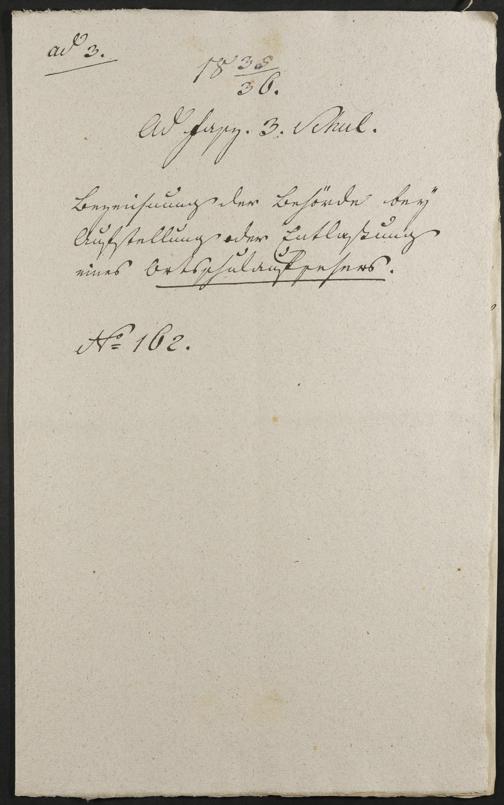 ad 3.
18 35/36.
Ad Fasz. 3. Schul.
Bezeichnung der Behörde bey
Aufstellung oder Entlaßung
eines Ortsschulaufsehers.
No 162.